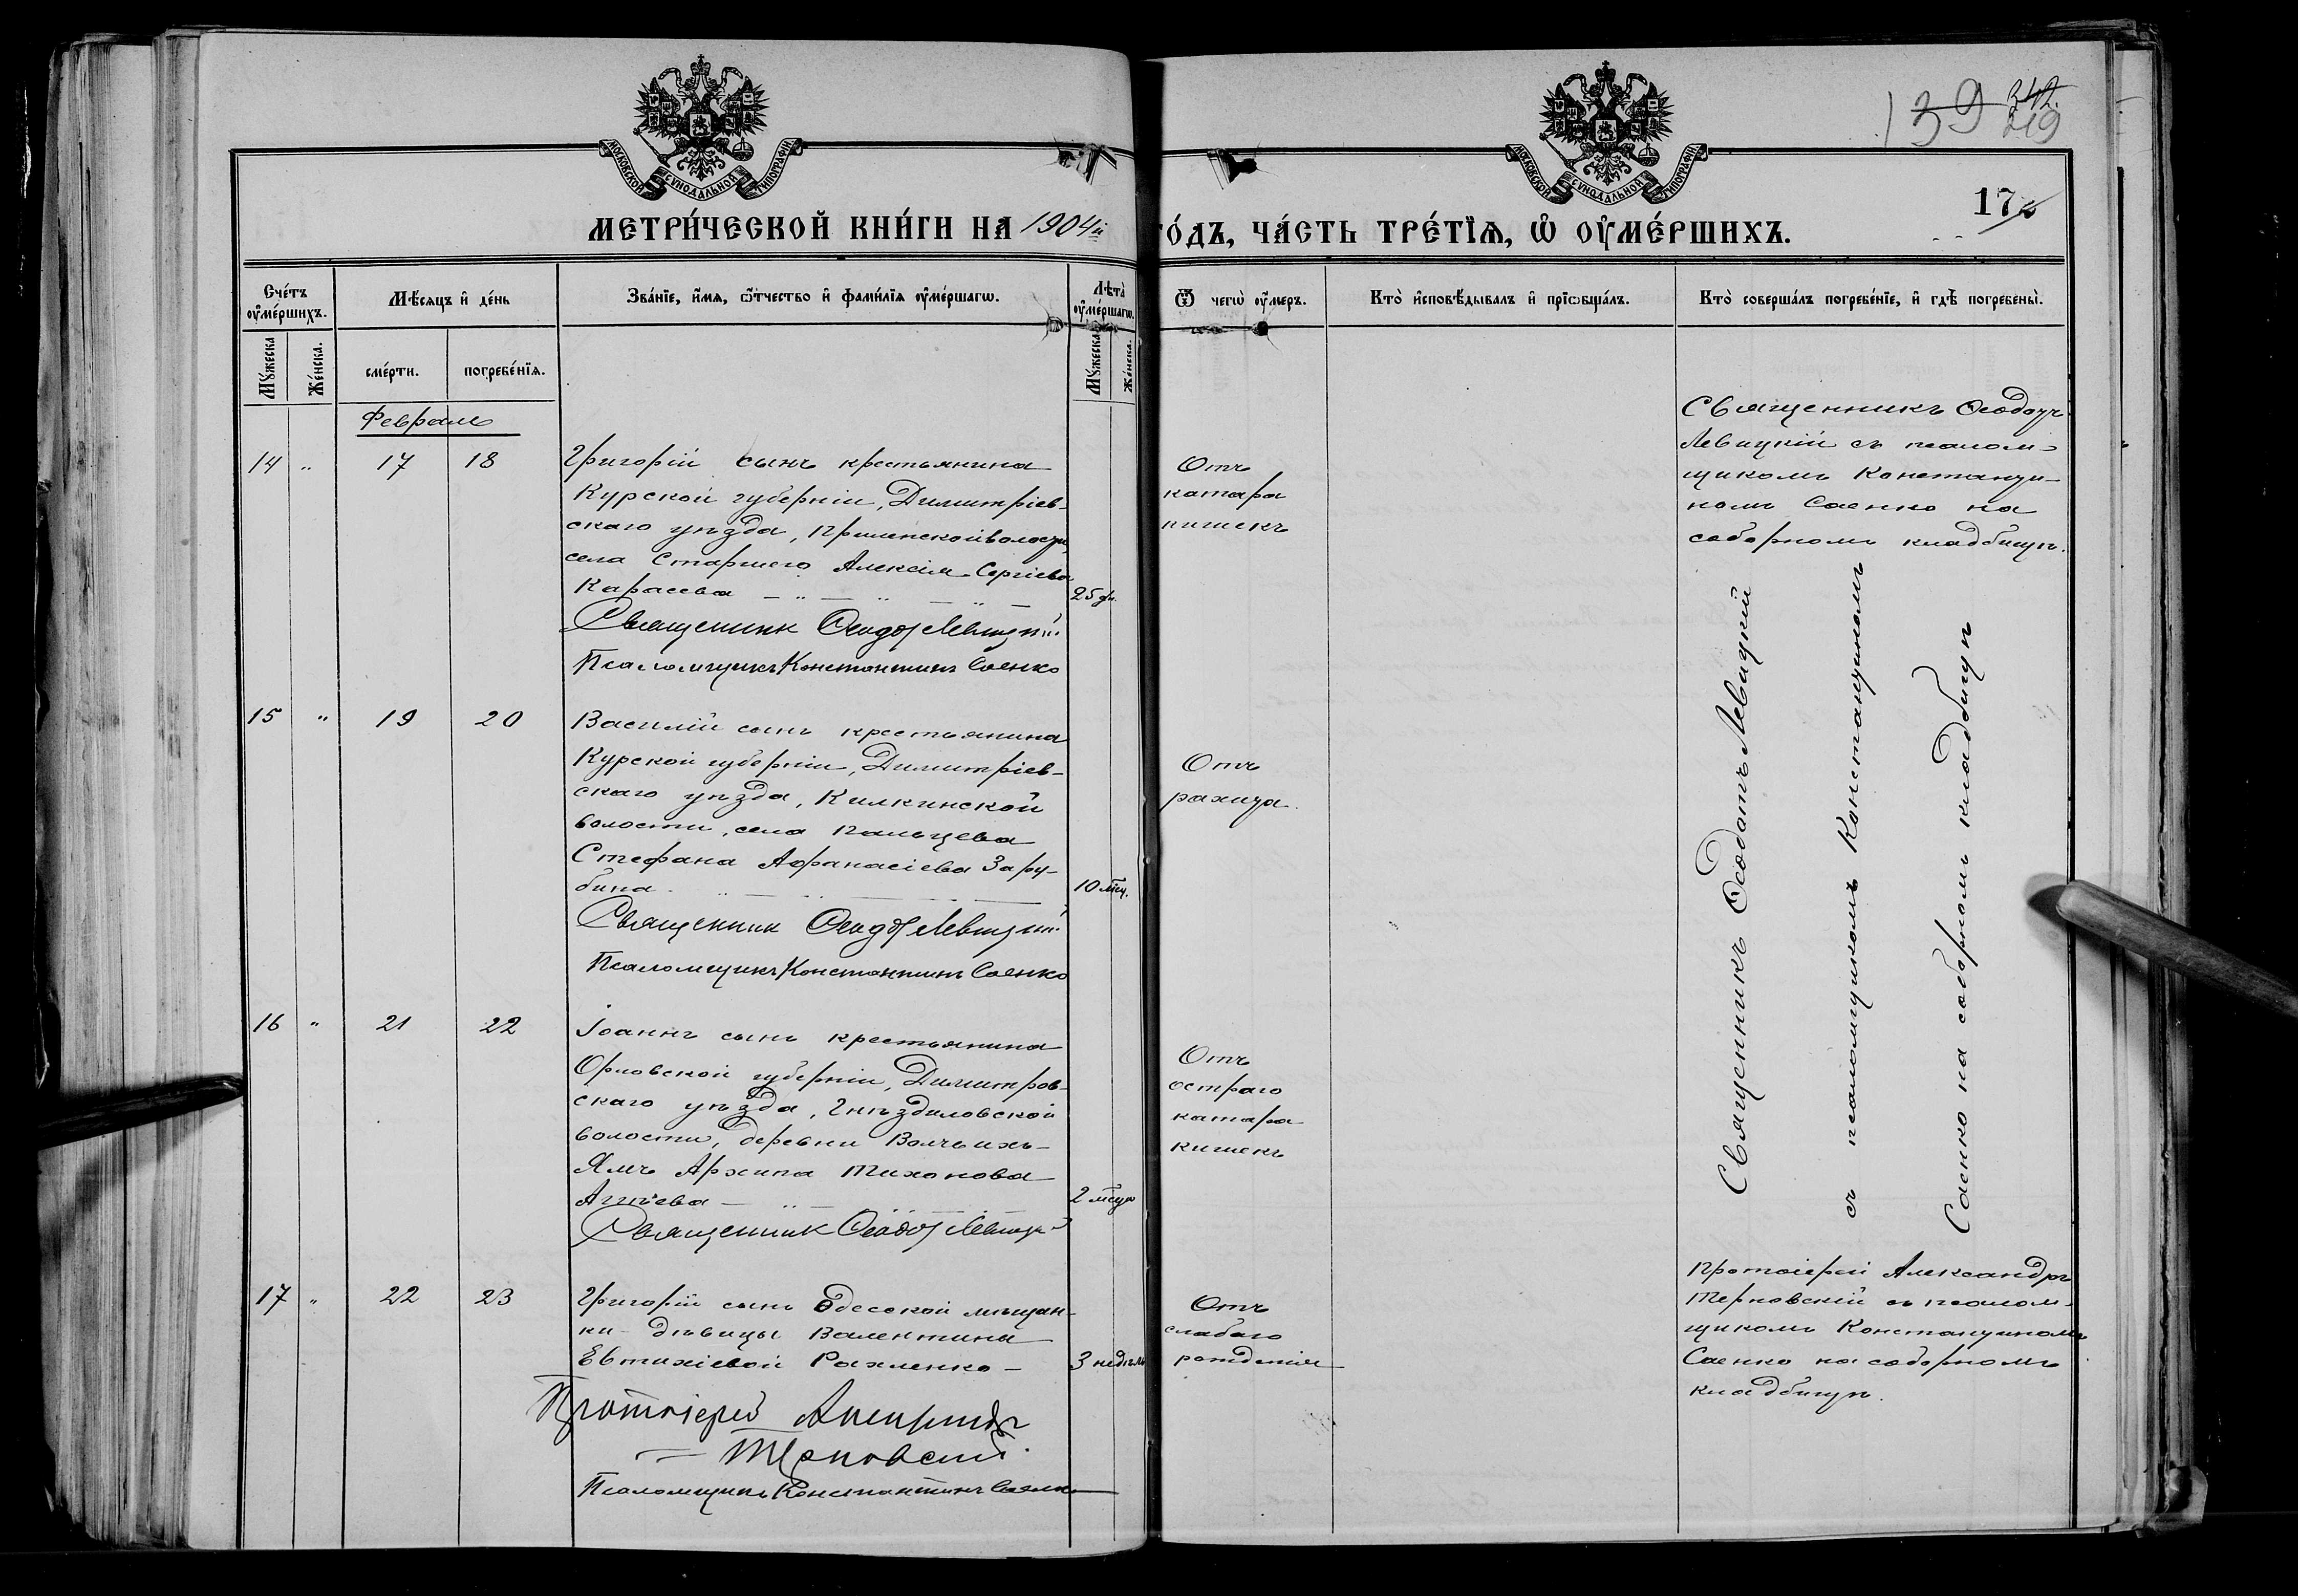 139 342.
219
МОСКОВСКОЙ СУНОДАЛЬНОЙ ТИПОГРАФІИ
МОСКОВСКОЙ СУНОДАЛЬНОЙ ТИПОГРАФІИ
17
МЕТРИ́ЧЕСКОЙ КНИ́ГИ НА 1904й
ГО́ДЪ, ЧА́СТЬ ТРЕ́ТЇѦ, Ѽ ОУ҆МЕ́РШИХЪ.
Сче́тъ оу҆ме́ршихъ.
Мѣ́сѧцъ и҆ де́нь
Зва́нїе, и҆́мѧ, ѻ҆́тчество и҆ фами́лїѧ оу҆ме́ршагѡ.
Лѣта̀ оу҆ме́ршагѡ.
Ѿ чегѡ̀ оу҆́меръ.
Кто̀ и҆сповѣ́дывалъ и҆ прїѡбща́лъ.
Кто̀ соверша́лъ погребе́нїе, и҆ гдѣ̀ погребены̀.
Мꙋ́жеска
Же́нска.
сме́рти.
погребе́нїѧ.
Мꙋ́жеска
Же́нска.
Февраль
14 " 17 18
Григорій сынъ крестьянина
Курской губерніи, Димитріев-
скаго уѣзда,
села Старшего Алексія Сергіева
Карасева
25 дн.
Священник Ѳеодот Левицкій
Псаломщикъ Константинъ Саенко
Отъ
катара
кишекъ
Священникъ Ѳеодотъ
Левицкій съ псалом-
щикомъ Константи-
номъ Саенко на
соборномъ кладбищѣ.
15 " 19 20
Василій сынъ крестьянина
Курской губерніи, Димитріев-
скаго уѣзда, Килкинской
волости, села Пальцева
Стефана Аѳанасіева Зару-
бина
10 мѣц.
Священник Ѳеодот Левицкій
Псаломщикъ Константинъ Саенко
Отъ
рахита.
Священникъ Ѳеодотъ Левицкій
съ псаломщикомъ Константиномъ
Саенко на соборномъ кладбищѣ
16 " 21 22
Іоаннъ сынъ крестьянина
Орловской губерніи, Димитров-
скаго уѣзда, Гнѣздиловской
волости, деревни Волчьихъ-
Ямъ Архипа Тихонова
2 мѣца
Священник Ѳеодот Левицкій
Отъ
остраго
катара
кишекъ
17 " 22 23
Григорій сынъ Одесской мѣщан-
ки дѣвицы Валентины
Евтихіевой Рахленко
3 недѣль
Протоіерей Александръ
Терновскій.
Псаломщикъ Константинъ Саенко
Отъ
слабаго
рожденія
Протоіерей Александръ
Терновскій съ псалом-
щикомъ Константиномъ
Саенко на соборномъ
кладбищѣ.